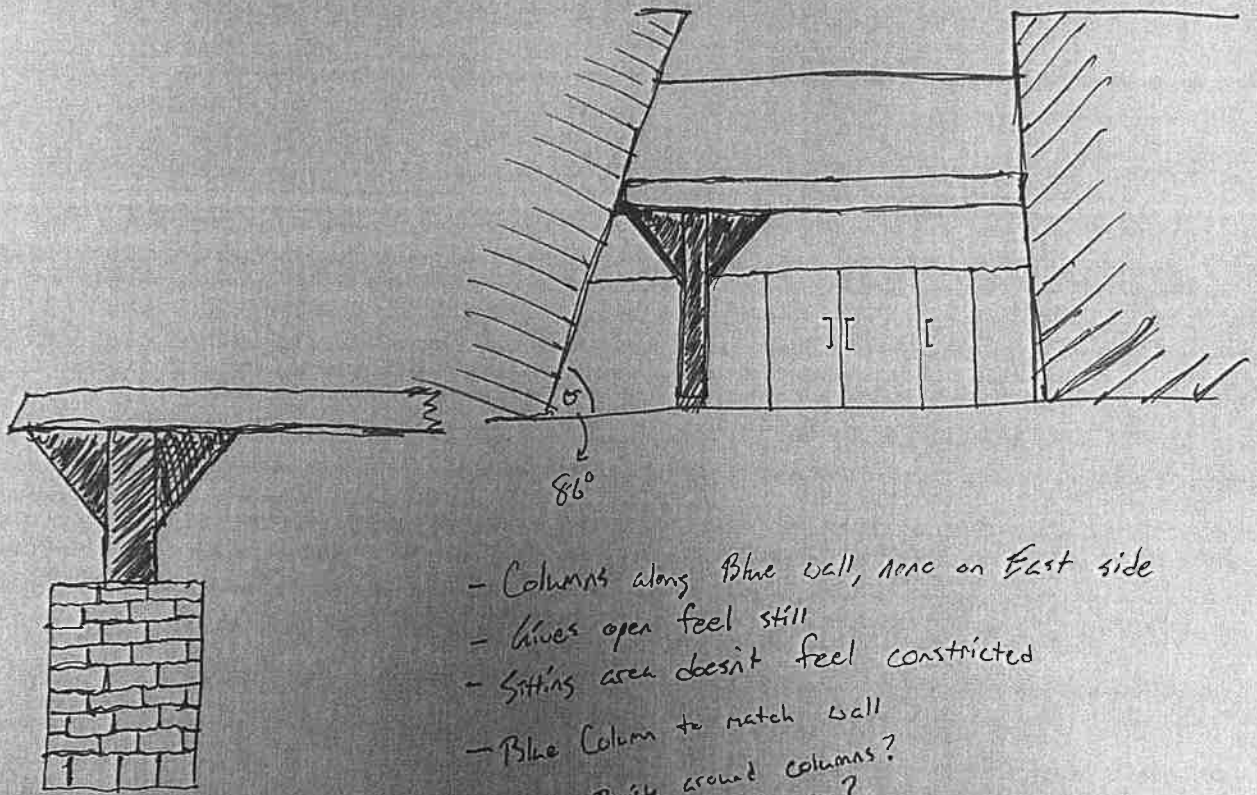 θ
86°
- Columns along Blue wall, none on East side
- Gives open feel still
- Sitting area doesn't feel constricted
- Blue Column to match wall
around columns?
?